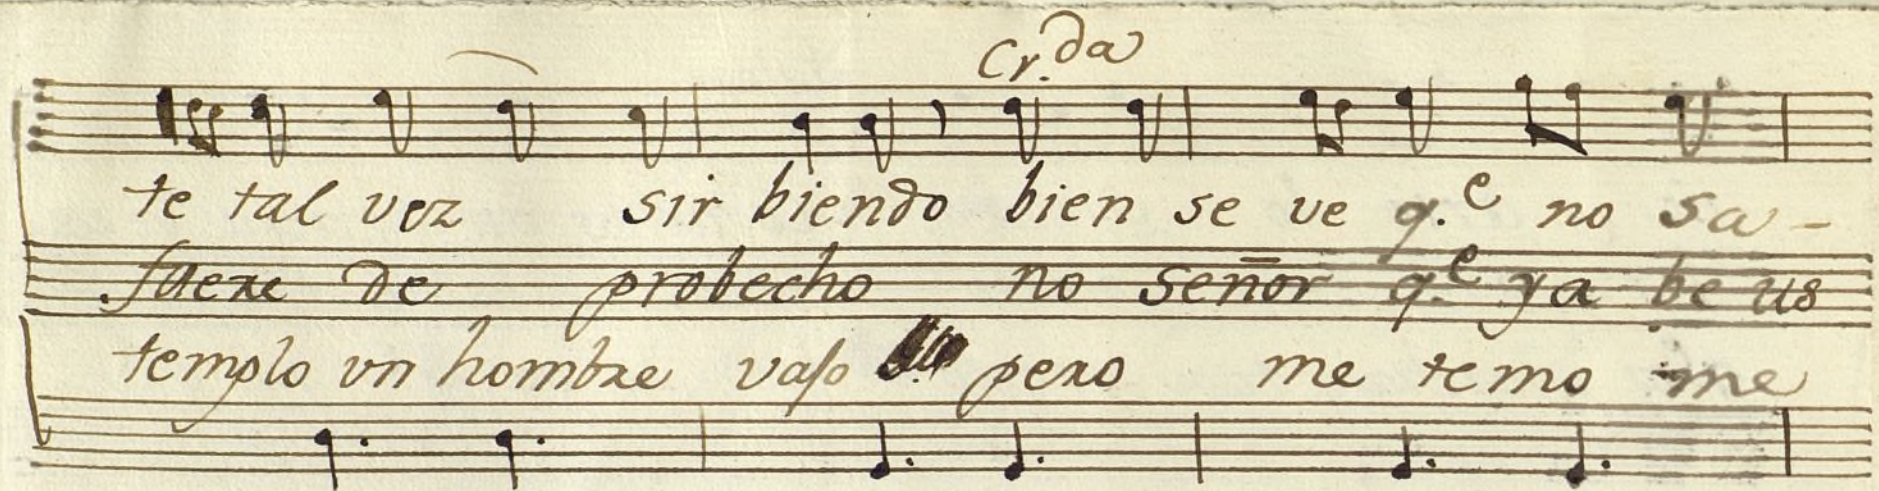 Cr.da
te tal vez sir biendo bien se ve q.e no sa-
fuere de probecho no señor q.e ya be us
templo vn hombre vaſo pero me temo me